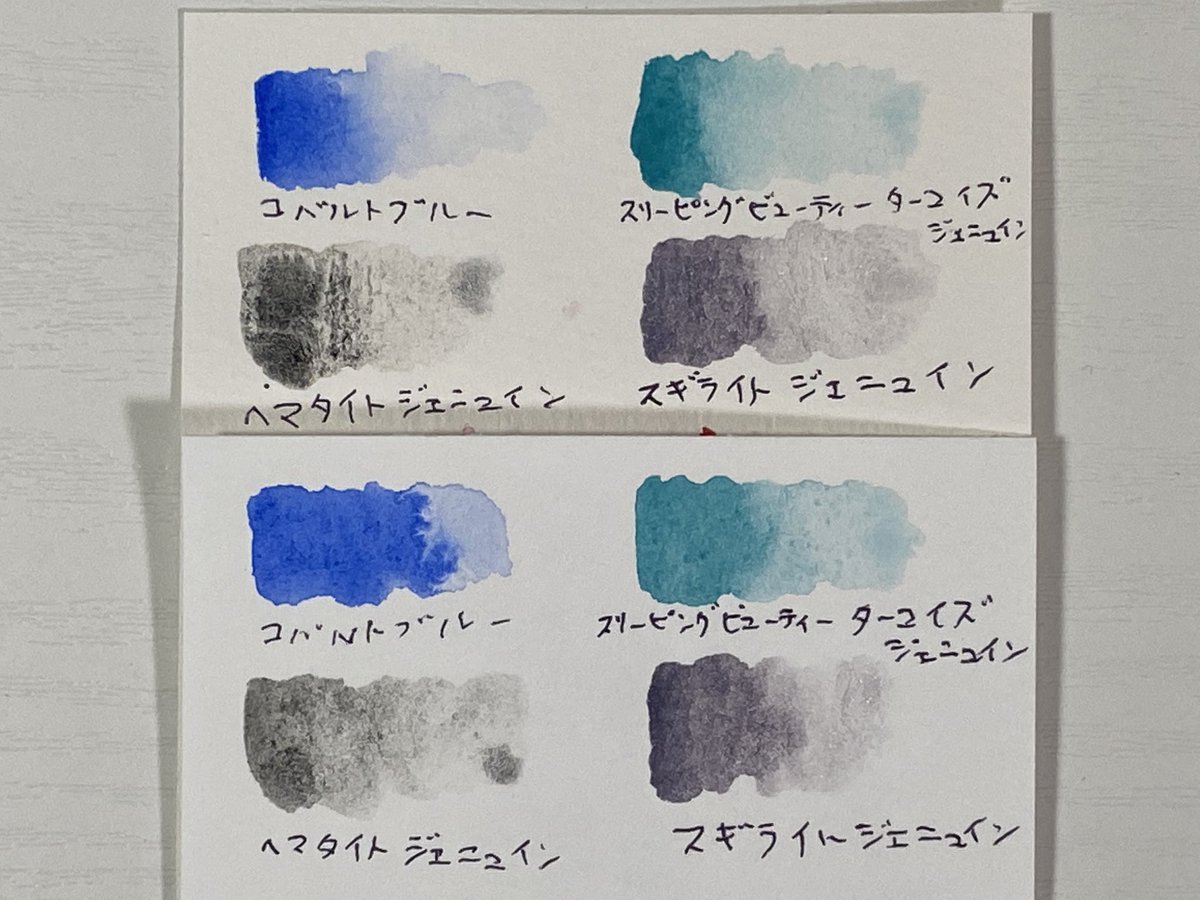 コバルトブルー
スリーピングビューティー ターコイズ
ジェニュイン
ヘマタイト ジェニュイン
スギライト ジェニュイン
コバルトブルー
スリーピングビューティー ターコイズ
ジェニュイン
ヘマタイト ジェニュイン
スギライト ジェニュイン